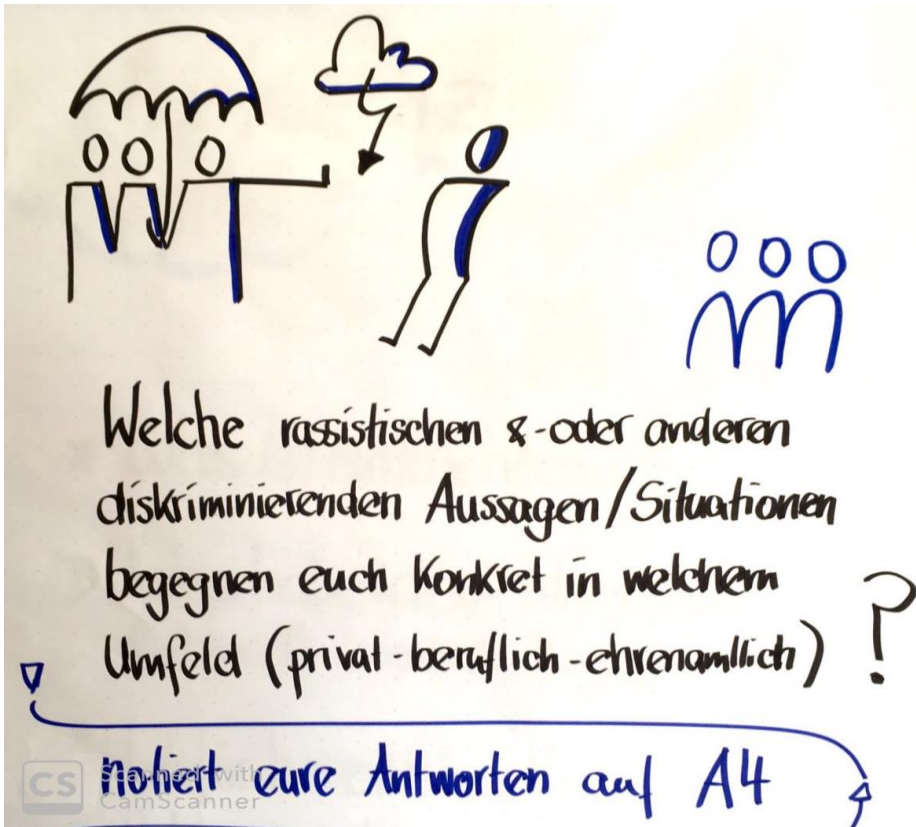 Welche rassistischen &-oder anderen
diskriminierenden Aussagen/Situationen
begegnen euch konkret in welchem
Umfeld (privat-beruflich-ehrenamtlich) ?
notiert eure Antworten auf A4
CS Scanned with
CamScanner